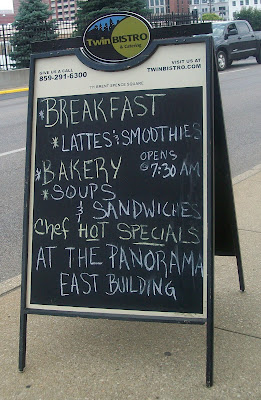 Twin BISTRO
& Catering
GIVE US A CALL
859-291-6300
VISIT US AT
TWINBISTRO.COM
BRENT SPENCE SQUARE
*BREAKFAST
*LATTES & SMOOTHIES
*BAKERY OPENS
@ 7:30 AM
*SOUPS
& SANDWICHES
Chef HOT SPECIALS
AT THE PANORAMA
EAST BUILDING